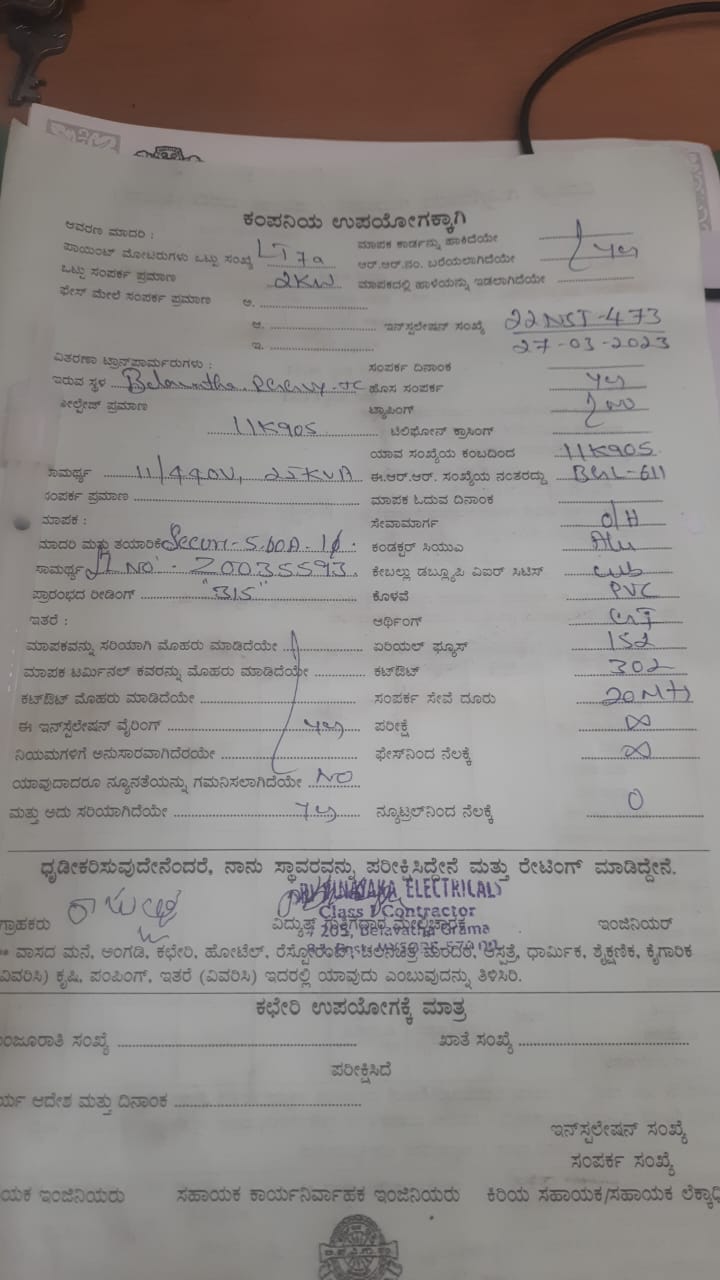 ಕಂಪನಿಯ ಉಪಯೋಗಕ್ಕಾಗಿ
ಆವರಣ ಮಾದರಿ :
ಪಾಯಿಂಟ್ ಮೋಟರುಗಳು ಒಟ್ಟು ಸಂಖ್ಯೆ LT7a ಮಾಪಕ ಕಾರ್ಡನ್ನು ಹಾಕಿದೆಯೇ
ಒಟ್ಟು ಸಂಪರ್ಕ ಪ್ರಮಾಣ 2KW ಆರ್.ಆರ್.ನಂ. ಬರೆಯಲಾಗಿದೆಯೇ yes
ಫೇಸ್ ಮೇಲೆ ಸಂಪರ್ಕ ಪ್ರಮಾಣ ಅ. ಮಾಪಕದಲ್ಲಿ ಹಾಳೆಯನ್ನು ಇಡಲಾಗಿದೆಯೇ
ಆ. ಇನ್‌ಸ್ಟಲೇಷನ್ ಸಂಖ್ಯೆ 22NST-473
ಇ. 27-03-2023
ವಿತರಣಾ ಟ್ರಾನ್ಸ್‌ಫಾರ್ಮರುಗಳು : ಸಂಪರ್ಕ ದಿನಾಂಕ
ಇರುವ ಸ್ಥಳ ಹೊಸ ಸಂಪರ್ಕ yes
ಪ್ರಮಾಣ ಟ್ಯಾಪಿಂಗ್ NO
11K905 ಟೆಲಿಫೋನ್ ಕ್ರಾಸಿಂಗ್
ಯಾವ ಸಂಖ್ಯೆಯ ಕಂಬದಿಂದ 11K905
ಸಾಮರ್ಥ್ಯ 11/440V, 25KVA ಈ.ಆರ್.ಆರ್. ಸಂಖ್ಯೆಯ ನಂತರದ್ದು BGL-611
ಸಂಪರ್ಕ ಪ್ರಮಾಣ ಮಾಪಕ ಓದುವ ದಿನಾಂಕ
ಮಾಪಕ : ಸೇವಾಮಾರ್ಗ O/H
ಮಾದರಿ ಮತ್ತು ತಯಾರಿಕೆ ಕಂಡಕ್ಟರ್ ಸಿಯುಎ Alu
ಸಾಮರ್ಥ್ಯ Sl NO - 20035593 ಕೇಬಲ್ಲು ಡಬ್ಲ್ಯೂಪಿ ವಿಐರ್ ಸಿಟಿಸ್
ಪ್ರಾರಂಭದ ರೀಡಿಂಗ್ "315" ಕೊಳವೆ PVC
ಇತರೆ : ಆರ್ಥಿಂಗ್
ಮಾಪಕವನ್ನು ಸರಿಯಾಗಿ ಮೊಹರು ಮಾಡಿದೆಯೇ ಏರಿಯಲ್ ಫ್ಯೂಸ್ 15Ω
ಮಾಪಕ ಟರ್ಮಿನಲ್ ಕವರನ್ನು ಮೊಹರು ಮಾಡಿದೆಯೇ ಕಟ್‌ಔಟ್ 30Ω
ಕಟ್‌ಔಟ್ ಮೊಹರು ಮಾಡಿದೆಯೇ ಸಂಪರ್ಕ ಸೇವೆ ದೂರು 20Mts
ಈ ಇನ್‌ಸ್ಟಲೇಷನ್ ವೈರಿಂಗ್ yes ಪರೀಕ್ಷೆ ∞
ನಿಯಮಗಳಿಗೆ ಅನುಸಾರವಾಗಿದೆರಯೇ ಫೇಸ್‌ನಿಂದ ನೆಲಕ್ಕೆ ∞
ಯಾವುದಾದರೂ ನ್ಯೂನತೆಯನ್ನು ಗಮನಿಸಲಾಗಿದೆಯೇ NO
ಮತ್ತು ಅದು ಸರಿಯಾಗಿದೆಯೇ yes ನ್ಯೂಟ್ರಲ್‌ನಿಂದ ನೆಲಕ್ಕೆ 0
ಧೃಡೀಕರಿಸುವುದೇನೆಂದರೆ, ನಾನು ಸ್ಥಾವರವನ್ನು ಪರೀಕ್ಷಿಸಿದ್ದೇನೆ ಮತ್ತು ರೇಟಿಂಗ್ ಮಾಡಿದ್ದೇನೆ.
VINAYAKA ELECTRICALS
Class I Contractor
ಗ್ರಾಹಕರು ವಿದ್ಯುತ್ ಗುತ್ತಿಗೆದಾರ ಮೇಲ್ವಿಚಾರಕ ಇಂಜಿನಿಯರ್
# 205, Belavatha Grama
** ವಾಸದ ಮನೆ, ಅಂಗಡಿ, ಕಛೇರಿ, ಹೋಟೆಲ್, ರೆಸ್ಟೋರೆಂಟ್, ಚಲನಚಿತ್ರ ಮಂದಿರ, ಆಸ್ಪತ್ರೆ, ಧಾರ್ಮಿಕ, ಶೈಕ್ಷಣಿಕ, ಕೈಗಾರಿಕ
(ವಿವರಿಸಿ) ಕೃಷಿ, ಪಂಪಿಂಗ್, ಇತರೆ (ವಿವರಿಸಿ) ಇದರಲ್ಲಿ ಯಾವುದು ಎಂಬುವುದನ್ನು ತಿಳಿಸಿರಿ.
ಕಛೇರಿ ಉಪಯೋಗಕ್ಕೆ ಮಾತ್ರ
ಂಜೂರಾತಿ ಸಂಖ್ಯೆ ಖಾತೆ ಸಂಖ್ಯೆ
ಪರೀಕ್ಷಿಸಿದೆ
ರ್ಯ ಆದೇಶ ಮತ್ತು ದಿನಾಂಕ
ಇನ್‌ಸ್ಟಲೇಷನ್ ಸಂಖ್ಯೆ
ಸಂಪರ್ಕ ಸಂಖ್ಯೆ
ಯಕ ಇಂಜಿನಿಯರು ಸಹಾಯಕ ಕಾರ್ಯನಿರ್ವಾಹಕ ಇಂಜಿನಿಯರು ಕಿರಿಯ ಸಹಾಯಕ/ಸಹಾಯಕ ಲೆಕ್ಕಾಧಿ